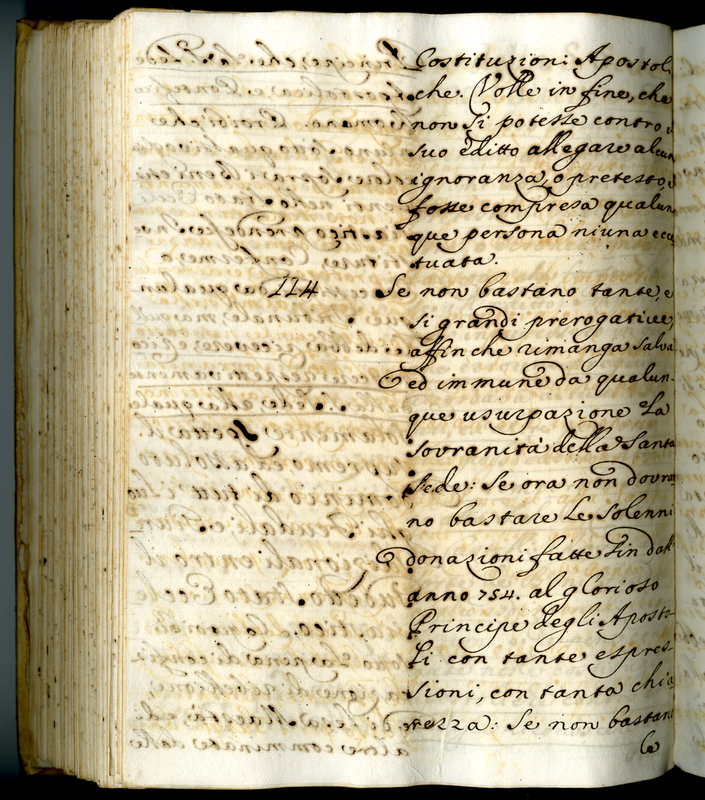 Costituzioni Apostoli
che. Volle in fine, che
non si potesse contro il
suo editto allegare alcun
ignoranza, o pretesto, e
fosse compresa qualun
que persona niuna ecce
tuata.
114 Se non bastano tante, e
si grandi prerogative,
affinche rimanga salva
ed immune da qualun-
que usurpazione la
sovranità della Santa
Sede: Se ora non dovran
no bastare le solenni
donazioni fatte fin dall'
anno 754. al glorioso
Principe degli Aposto-
li con tante espres
sioni, con tanta chia
rezza: Se non bastano
le